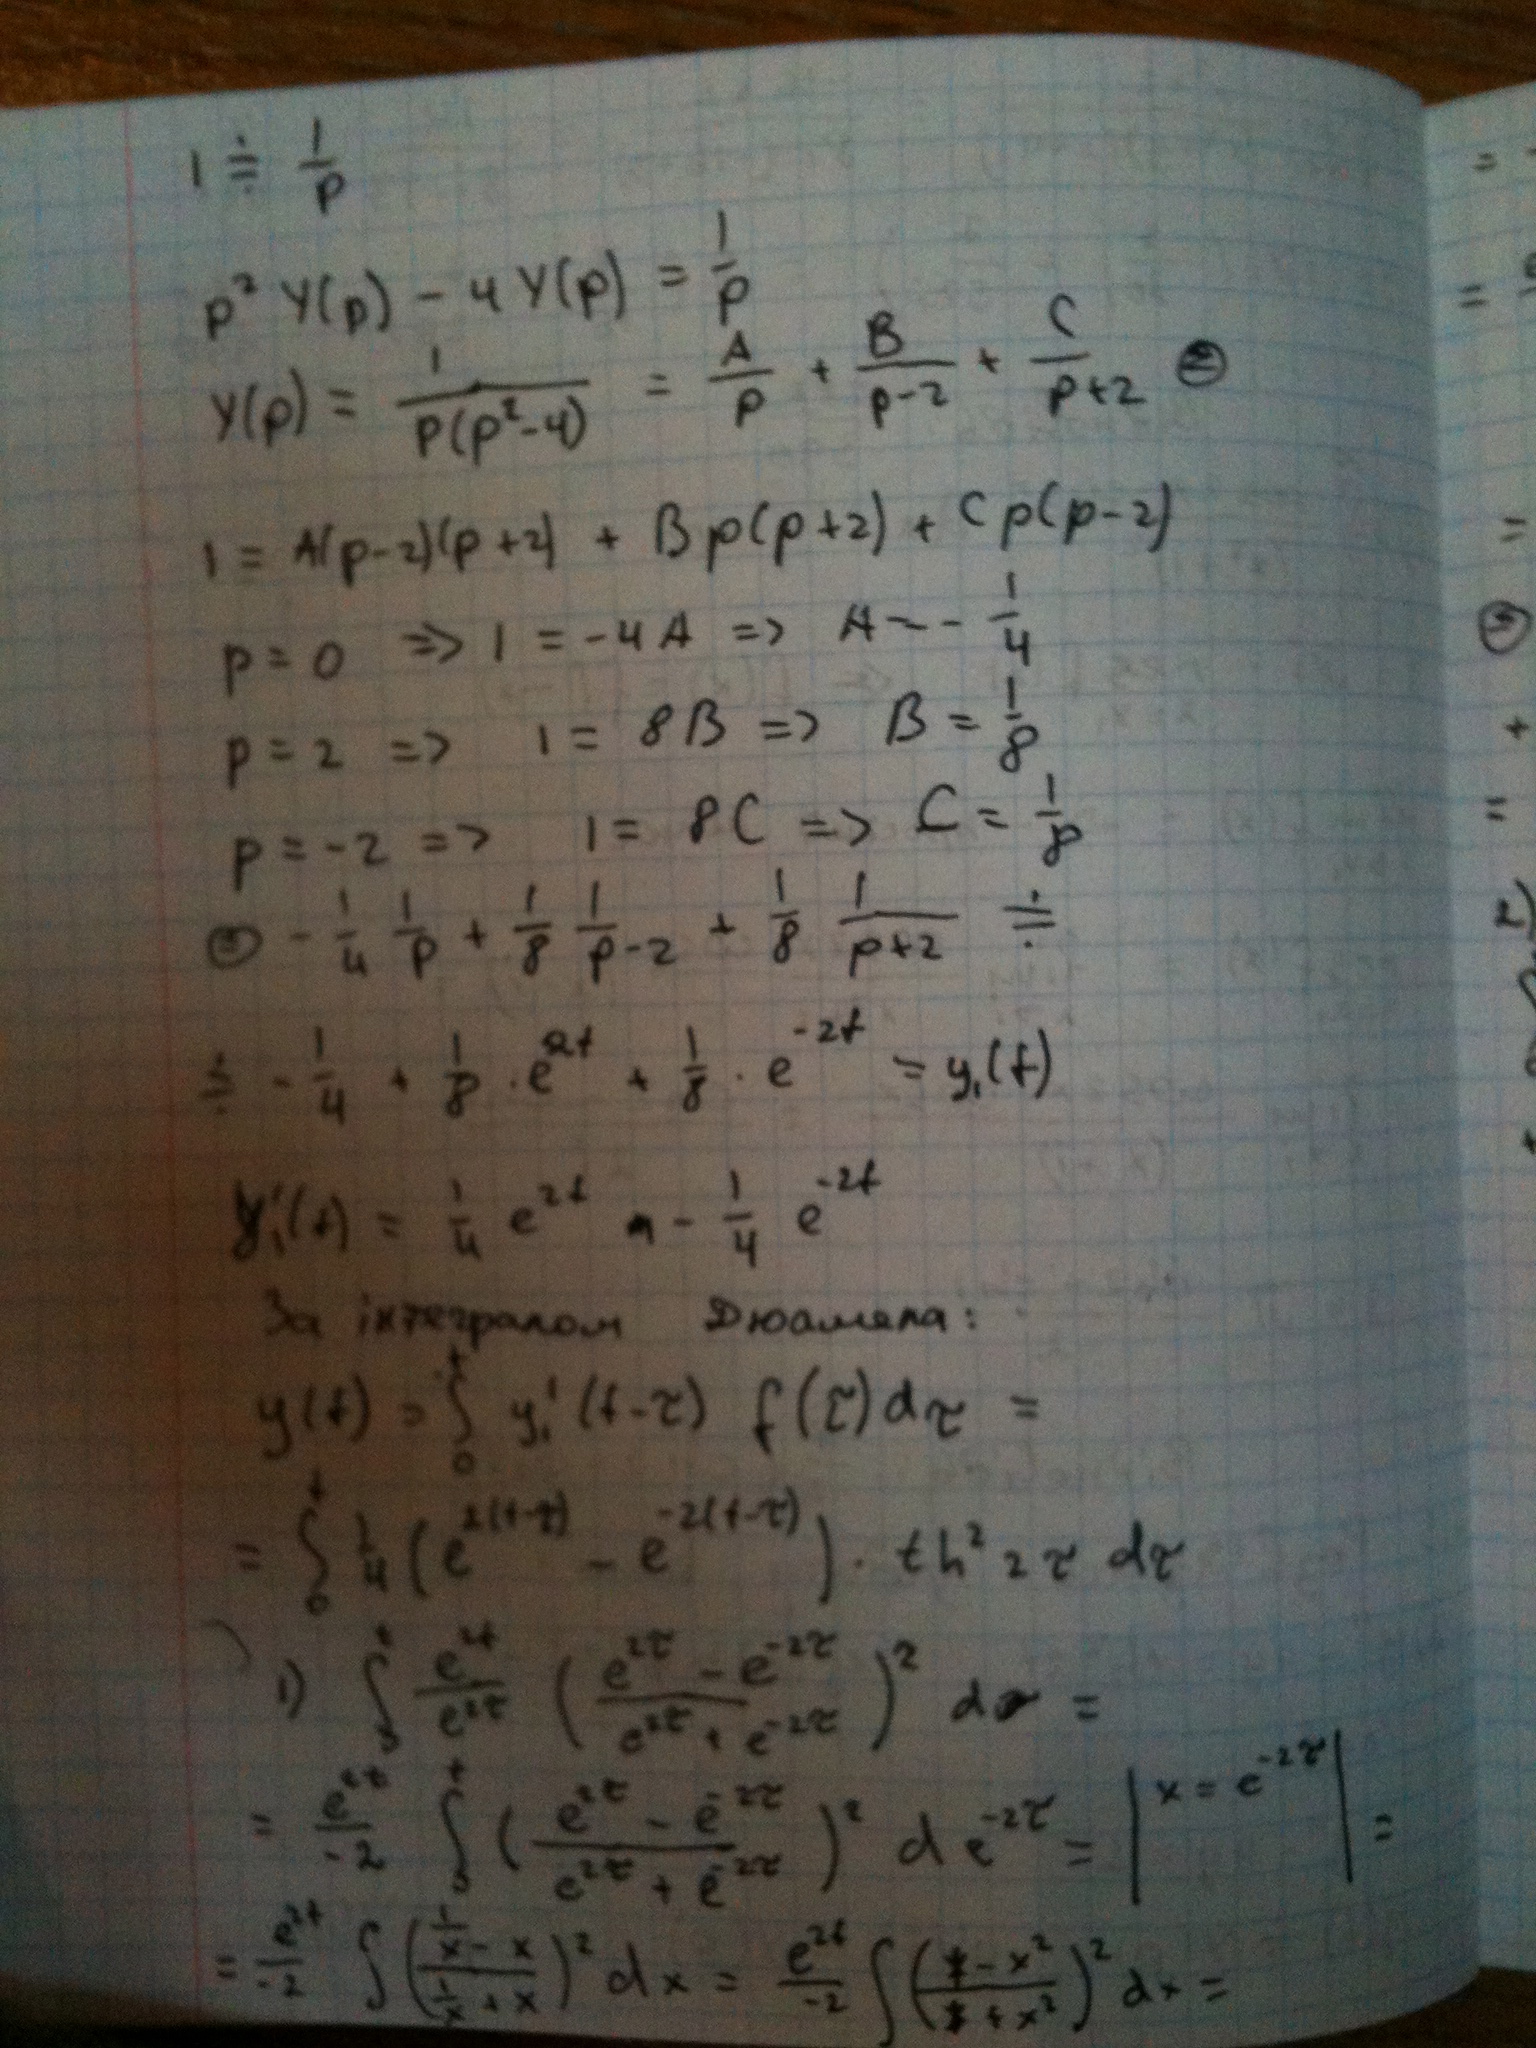 1 ≑ 1/p
p² Y(p) - 4 Y(p) = 1/p
Y(p) = 1/(p(p²-4)) = A/p + B/(p-2) + C/(p+2) ⊜
1 = A(p-2)(p+2) + Bp(p+2) + Cp(p-2)
p = 0 => 1 = -4A => A = -1/4
p = 2 => 1 = 8B => B = 1/8
p = -2 => 1 = 8C => C = 1/8
⊜ -1/4 1/p + 1/8 1/(p-2) + 1/8 1/(p+2) ≑
≑ -1/4 + 1/8 · e^(2t) + 1/8 · e^(-2t) = y₁(t)
y₁'(t) = 1/4 e^(2t) - 1/4 e^(-2t)
За інтегралом Дюамеля:
y(t) = ∫₀ᵗ y₁'(t-τ) f(τ)dτ =
= ∫₀ᵗ 1/4 (e^(2(t-τ)) - e^(-2(t-τ))) · th² 2τ dτ
1) ∫₀ᵗ e^(2t)/e^(2τ) ((e^(2τ) - e^(-2τ))/(e^(2τ) + e^(-2τ)))² dτ =
= e^(2t)/-2 ∫₀ᵗ ((e^(2τ) - e^(-2τ))/(e^(2τ) + e^(-2τ)))² d e^(-2τ) = | x = e^(-2τ) | =
= e^(2t)/-2 ∫ ((1/x - x)/(1/x + x))² dx = e^(2t)/-2 ∫ ((1 - x²)/(1 + x²))² dx =
=
=
=
⊜
+
=
2)